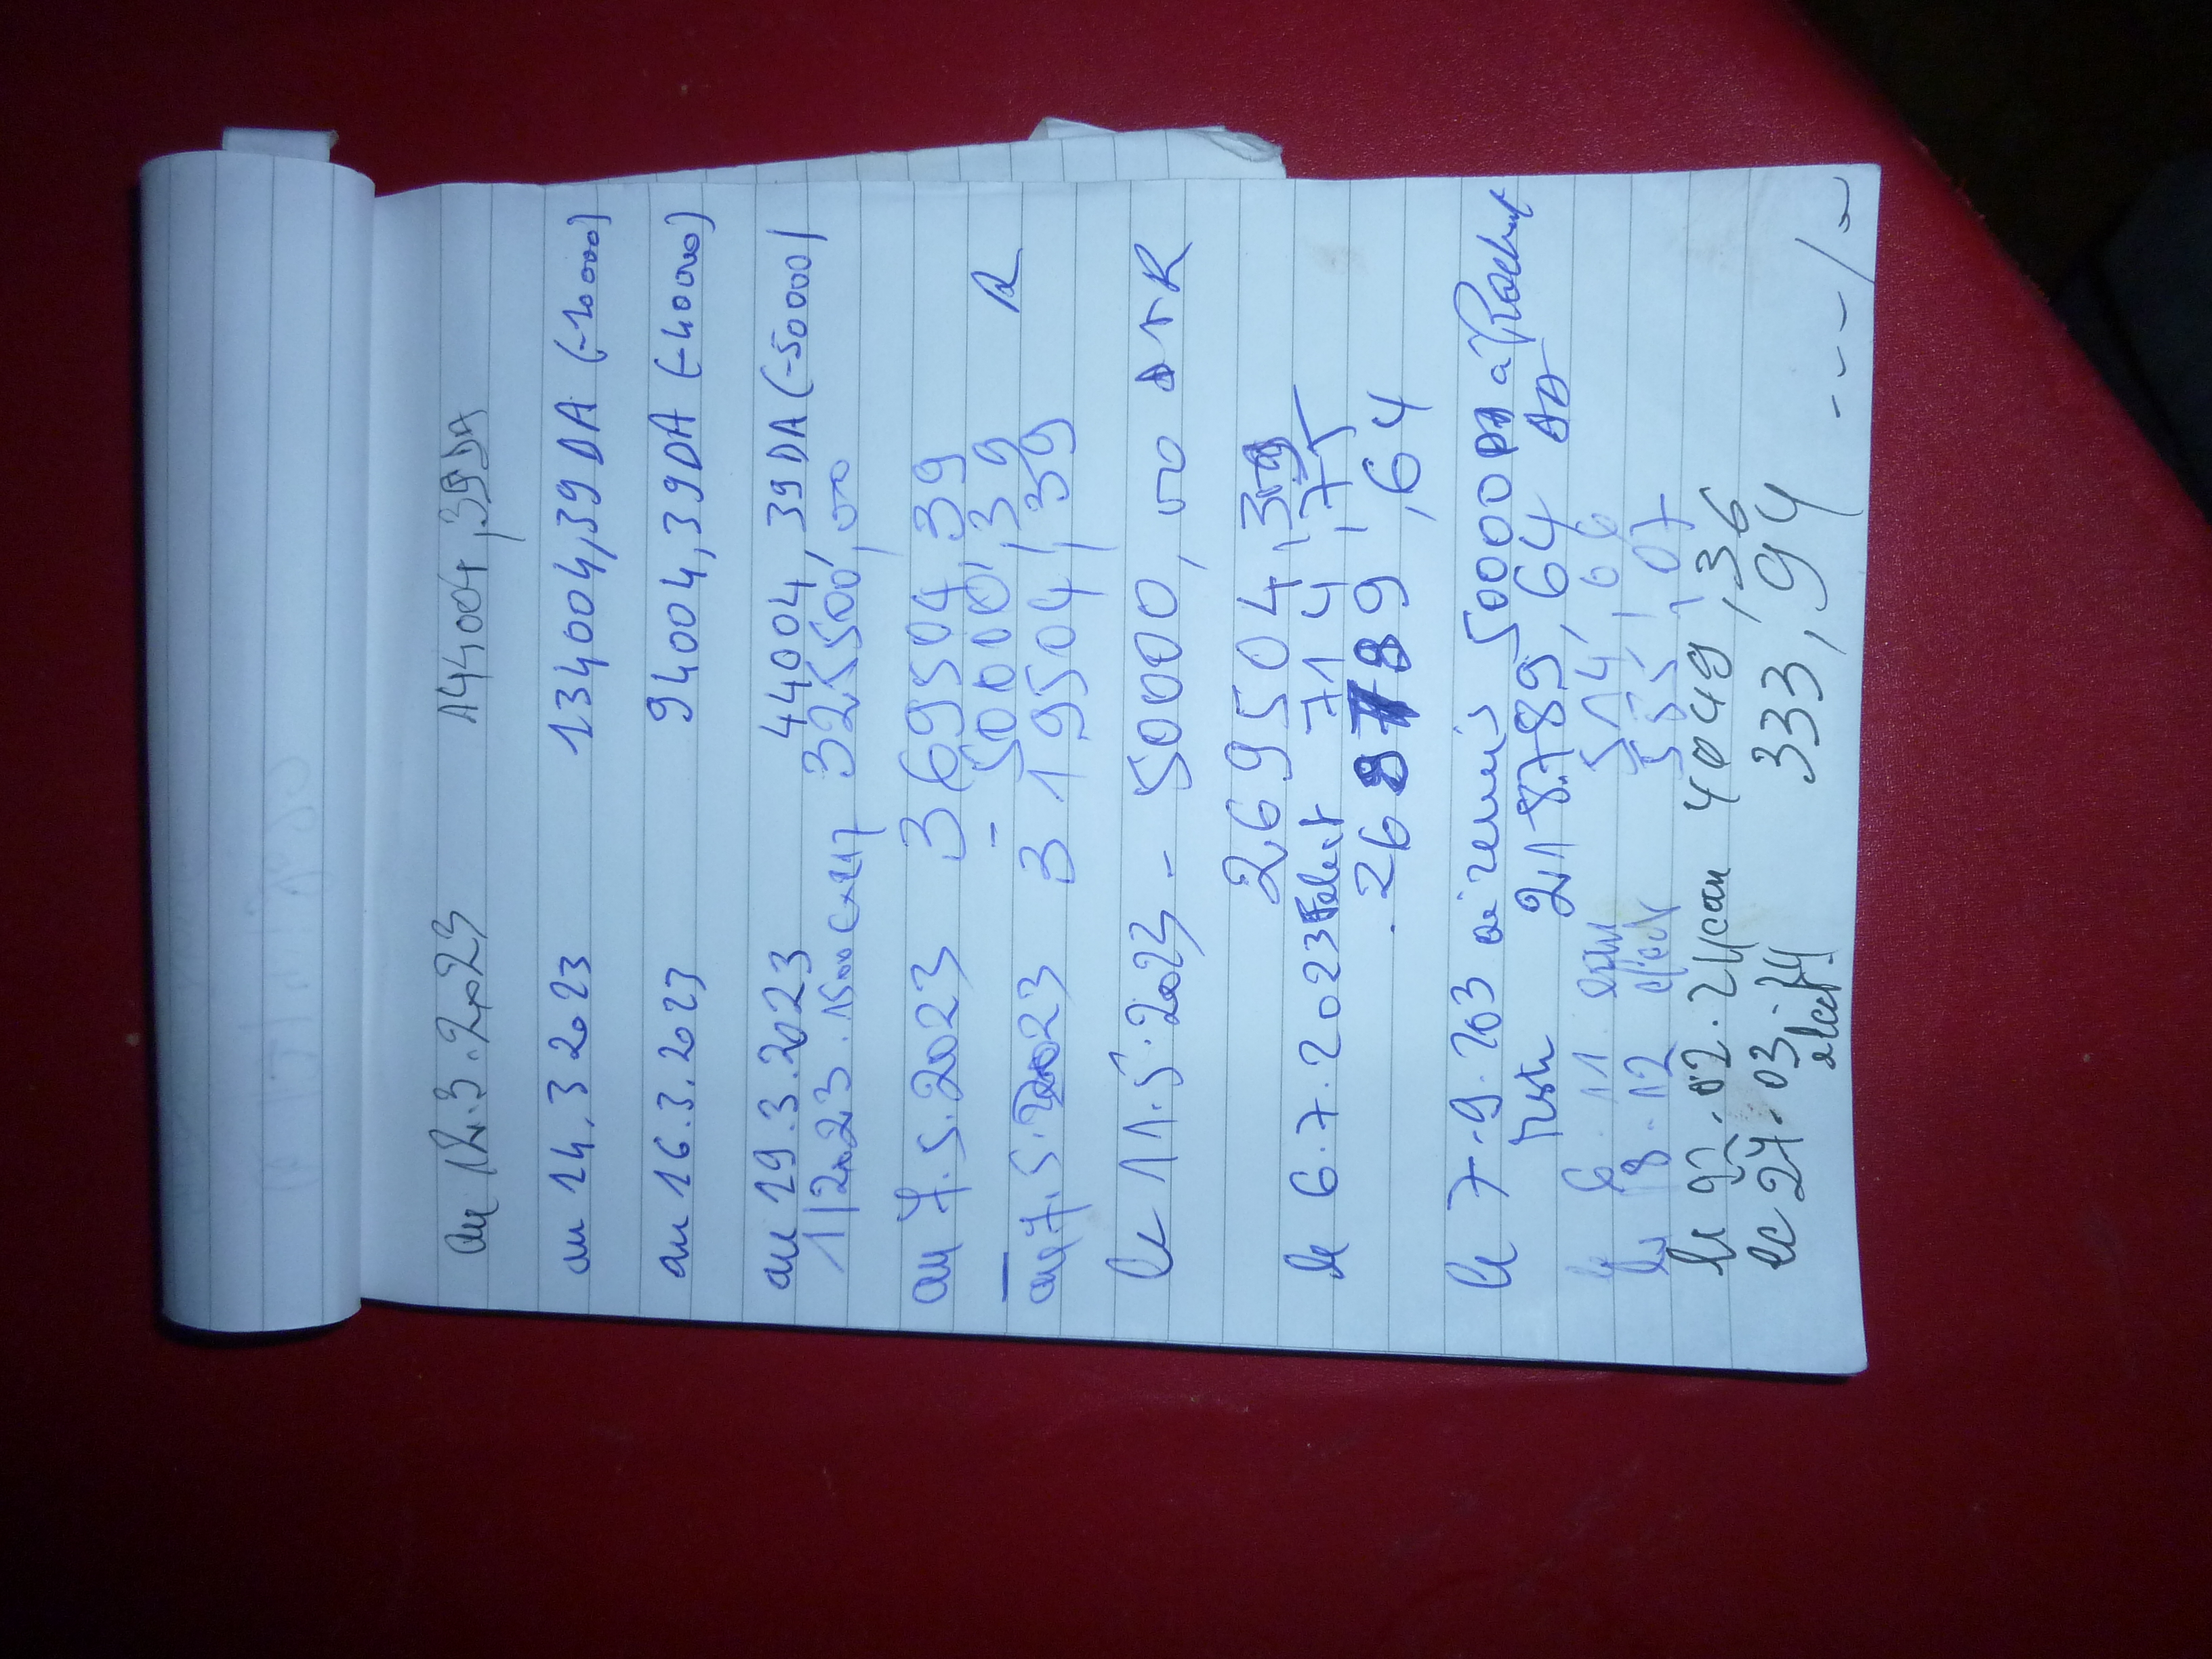 au 12.3.2023 144004,39 DA
au 14.3 2023 134004,39 DA (-10000)
au 16.3.2023 94004,39 DA (-40000)
au 19.3.2023 44004,39 DA (-50000)
325500,00
au 7.5.2023 369504,39
- 50000,39 R
au 7.5.2023 319504,39
le 11.5.2023 - 50000,00 R
269504,39
le 6.7.2023 714,75
268789,64
le 7.9.203 ai remis 50000 DA à Rachid
Reste 218789,64 AD
le 6.11 eau 514,66
le 8.12 élect 5585,07
le 02.24 eau 4049,36
le 27.03.24 333,94
elect